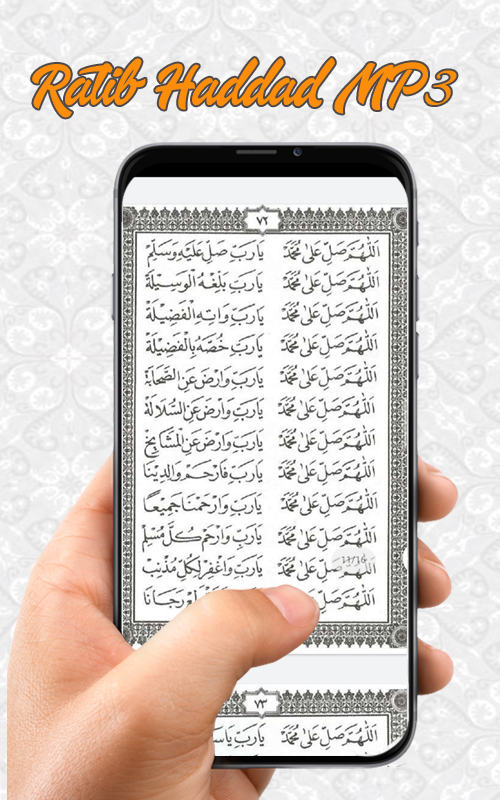 Ratib Haddad MP3
٧٢
اَللّٰهُمَّ صَلِّ عَلٰى مُحَمَّدْ يَارَبِّ صَلِّ عَلَيْهِ وَسَلِّمْ
اَللّٰهُمَّ صَلِّ عَلٰى مُحَمَّدْ يَارَبِّ بَلِّغْهُ الْوَسِيْلَةَ
اَللّٰهُمَّ صَلِّ عَلٰى مُحَمَّدْ يَارَبِّ وَاتِهِ الْفَضِيْلَةَ
اَللّٰهُمَّ صَلِّ عَلٰى مُحَمَّدْ يَارَبِّ خُصَّهُ بِالْفَضِيْلَةَ
اَللّٰهُمَّ صَلِّ عَلٰى مُحَمَّدْ يَارَبِّ وَارْضَ عَنِ الصَّحَابَةَ
اَللّٰهُمَّ صَلِّ عَلٰى مُحَمَّدْ يَارَبِّ وَارْضَ عَنِ السُّلَالَةَ
اَللّٰهُمَّ صَلِّ عَلٰى مُحَمَّدْ يَارَبِّ وَارْضَ عَنِ الْمَشَايِخِ
اَللّٰهُمَّ صَلِّ عَلٰى مُحَمَّدْ يَارَبِّ فَارْحَمْ وَالِدِيْنَا
اَللّٰهُمَّ صَلِّ عَلٰى مُحَمَّدْ يَارَبِّ وَارْحَمْنَا جَمِيْعًا
اَللّٰهُمَّ صَلِّ عَلٰى مُحَمَّدْ يَارَبِّ وَارْحَمْ كُلَّ مُسْلِمْ
11/16
اَللّٰهُمَّ صَلِّ عَلٰى مُحَمَّدْ يَارَبِّ وَاغْفِرْ لِكُلِّ مُذْنِبْ
اَللّٰهُمَّ صَلِّ رَجَانَا
٧٣
اَللّٰهُمَّ صَلِّ عَلٰى مُحَمَّدْ يَارَبِّ